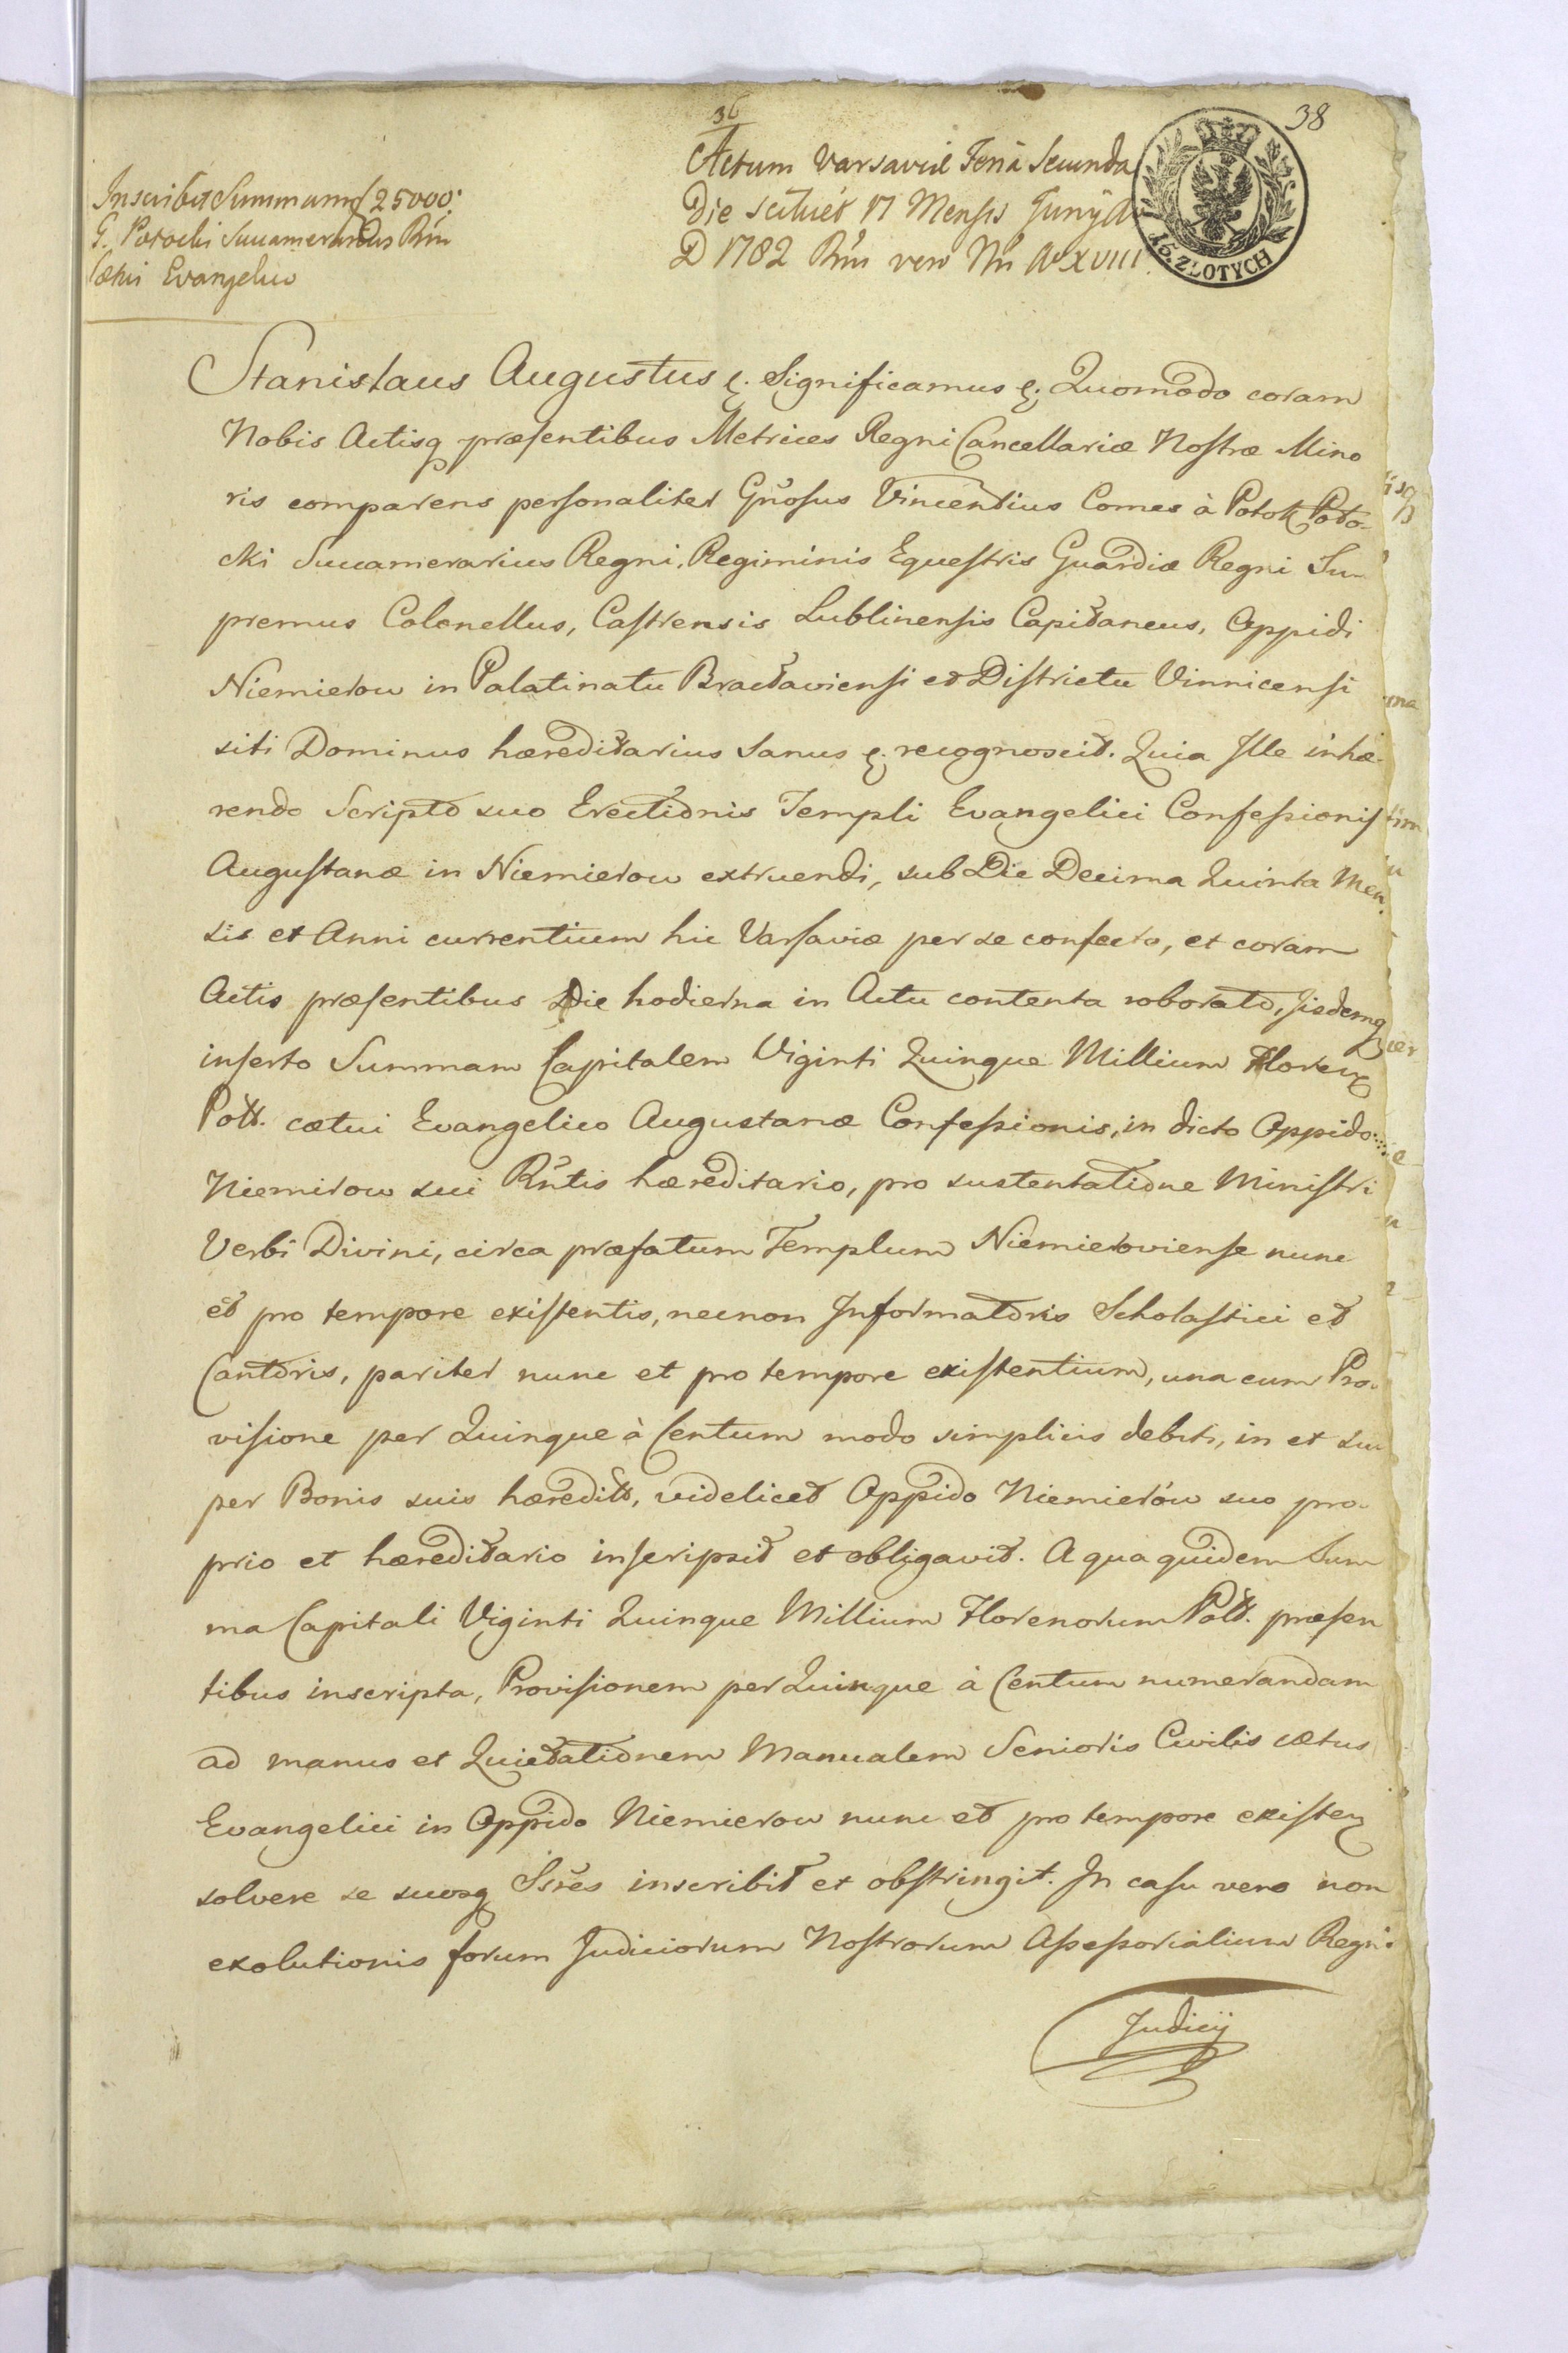 36
38
Actum Varsaviæ Feria Secunda
Die scilicet 17 Mensis Junÿ A
D 1782 Rni vero Nri Aº XVIII.
15. ZŁOTYCH
Inscribit Summam f 25000.
G. Potocki Succamerarius Rni
Cætui Evangelico
Stanislaus Augustus &. Significamus &. Quomodo coram
Nobis Actisq præsentibus Metrices Regni Cancellariæ Nostræ Mino
ris comparens personaliter Gñosus Vincentius Comes à Potok Poto-
cki Succamerarius Regni, Regiminis Equestris Guardiæ Regni Su-
premus Colonellus, Castrensis Lublinensis Capitaneus, Oppidi
Niemierow in Palatinatu Bracłaviensi et Districtu Vinnicensi
siti Dominus hæreditarius Sanus &. recognoscit. Quia Ille inhæ-
rendo Scripto suo Erectionis Templi Evangelici Confessionis
Augustanæ in Niemierow extruendi, sub Die Decima Quinta Men-
sis et Anni currentium hic Varsaviæ per se confecto, et coram
Actis præsentibus Die hodierna in Actu contenta roborato, iisdemq
inserto Summam Capitalem Viginti Quinque Millium Floren
Poll. cætui Evangelico Augustanæ Confessionis, in dicto Oppido
Niemirow sui Rñtis hæreditario, pro sustentatione Ministri
Verbi Divini, circa præfatum Templum Niemieroviense nunc
et pro tempore existentis, necnon Informatoris Scholastici et
Cantoris, pariter nunc et pro tempore existentium, una cum Pro-
visione per Quinque à Centum modo simplicis debiti, in et su
per Bonis suis hæredit, videlicet Oppido Niemierów suo pro-
prio et hæreditario inscripsit et obligavit. A qua quidem Sum
ma Capitali Viginti Quinque Millium Florenorum Poll. præsen
tibus inscripta, Provisionem per Quinque à Centum numerandam
ad manus et Quietationem Manualem Senioris Civilis cætus
Evangelici in Oppido Niemierow nunc et pro tempore existen
solvere se suosq Ssres inscribit et obstringit. In casu vero non
exolutionis forum Judiciorum Nostrorum Assessorialium Regni
Judicij